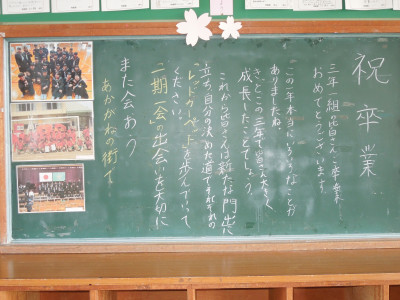 祝卒業
三年一組の皆さんご卒業
おめでとうございます。
この一年本当にいろいろなことが
ありましたね。
きっとこの三年で皆さん大きく
成長したことでしょう。
これから皆さんは新たな門出に
立ち、自分の決めた道でそれぞれの
「レッドカーペット」を歩んでいって
ください。
「一期一会」の出会いを大切に
また会おう
あかがねの街で